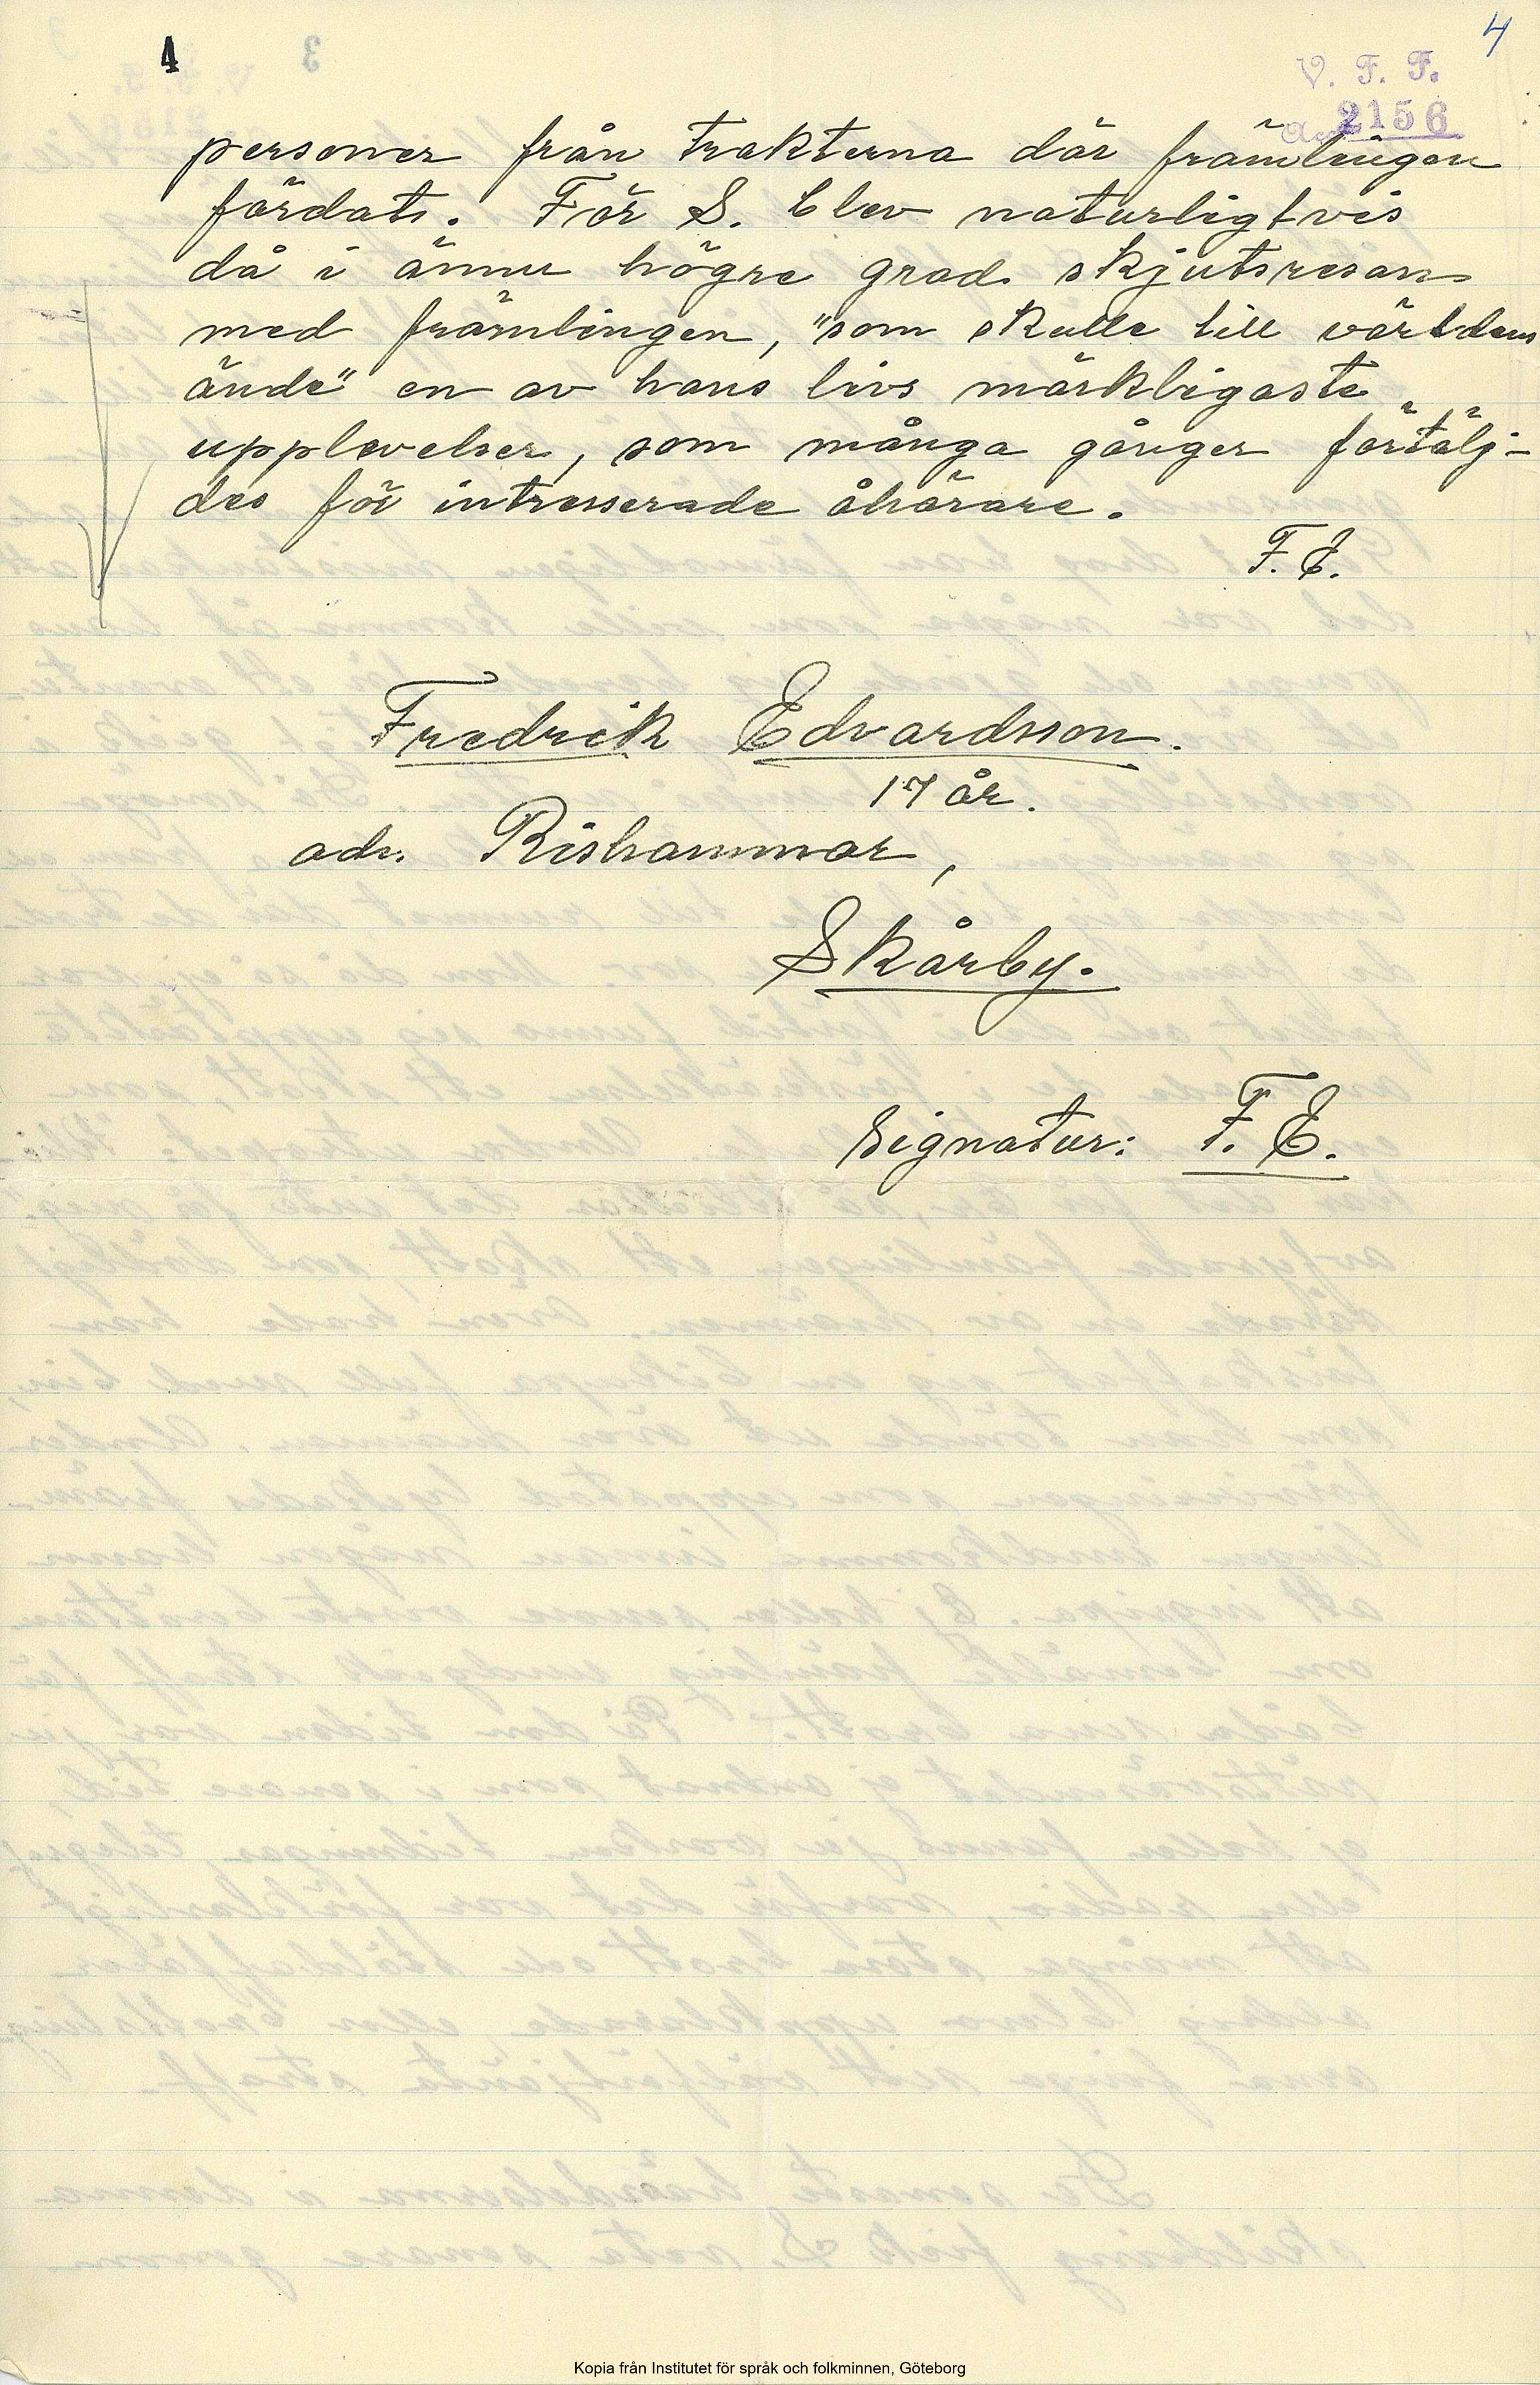 4
4
V. F. F.
2156
personer från trakterna där främlingen
färdats. För S. blev naturligtvis
då i ännu högre grad skjutsresan
med främlingen, "som skulle till världens
ände" en av hans livs märkligaste
upplevelser, som många gånger förtälj-
des för intresserade åhörare.
F. E.
Fredrik Edvardsson.
17 år.
adr. Rishammar,
Skårby.
Signatur: F. E.
Kopia från Institutet för språk och folkminnen, Göteborg